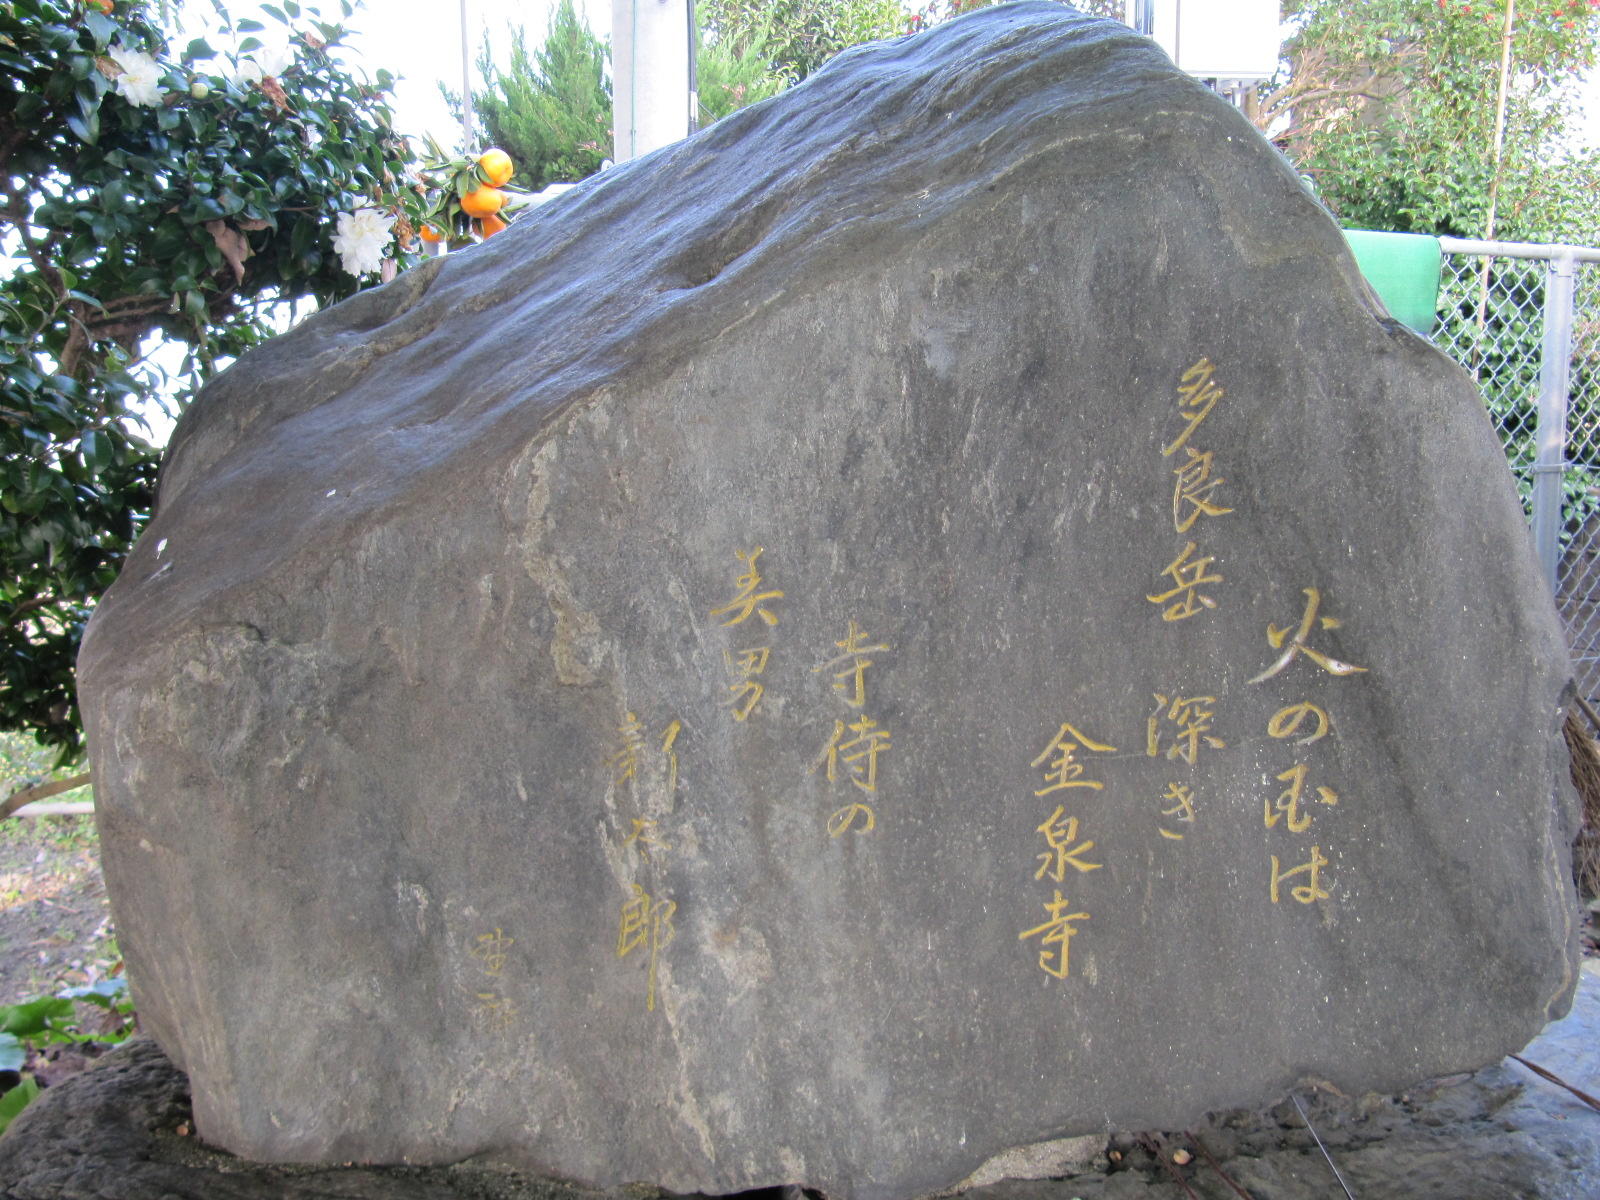 火の国は
多良岳 深き
金泉寺
寺侍の
美男
新太郎